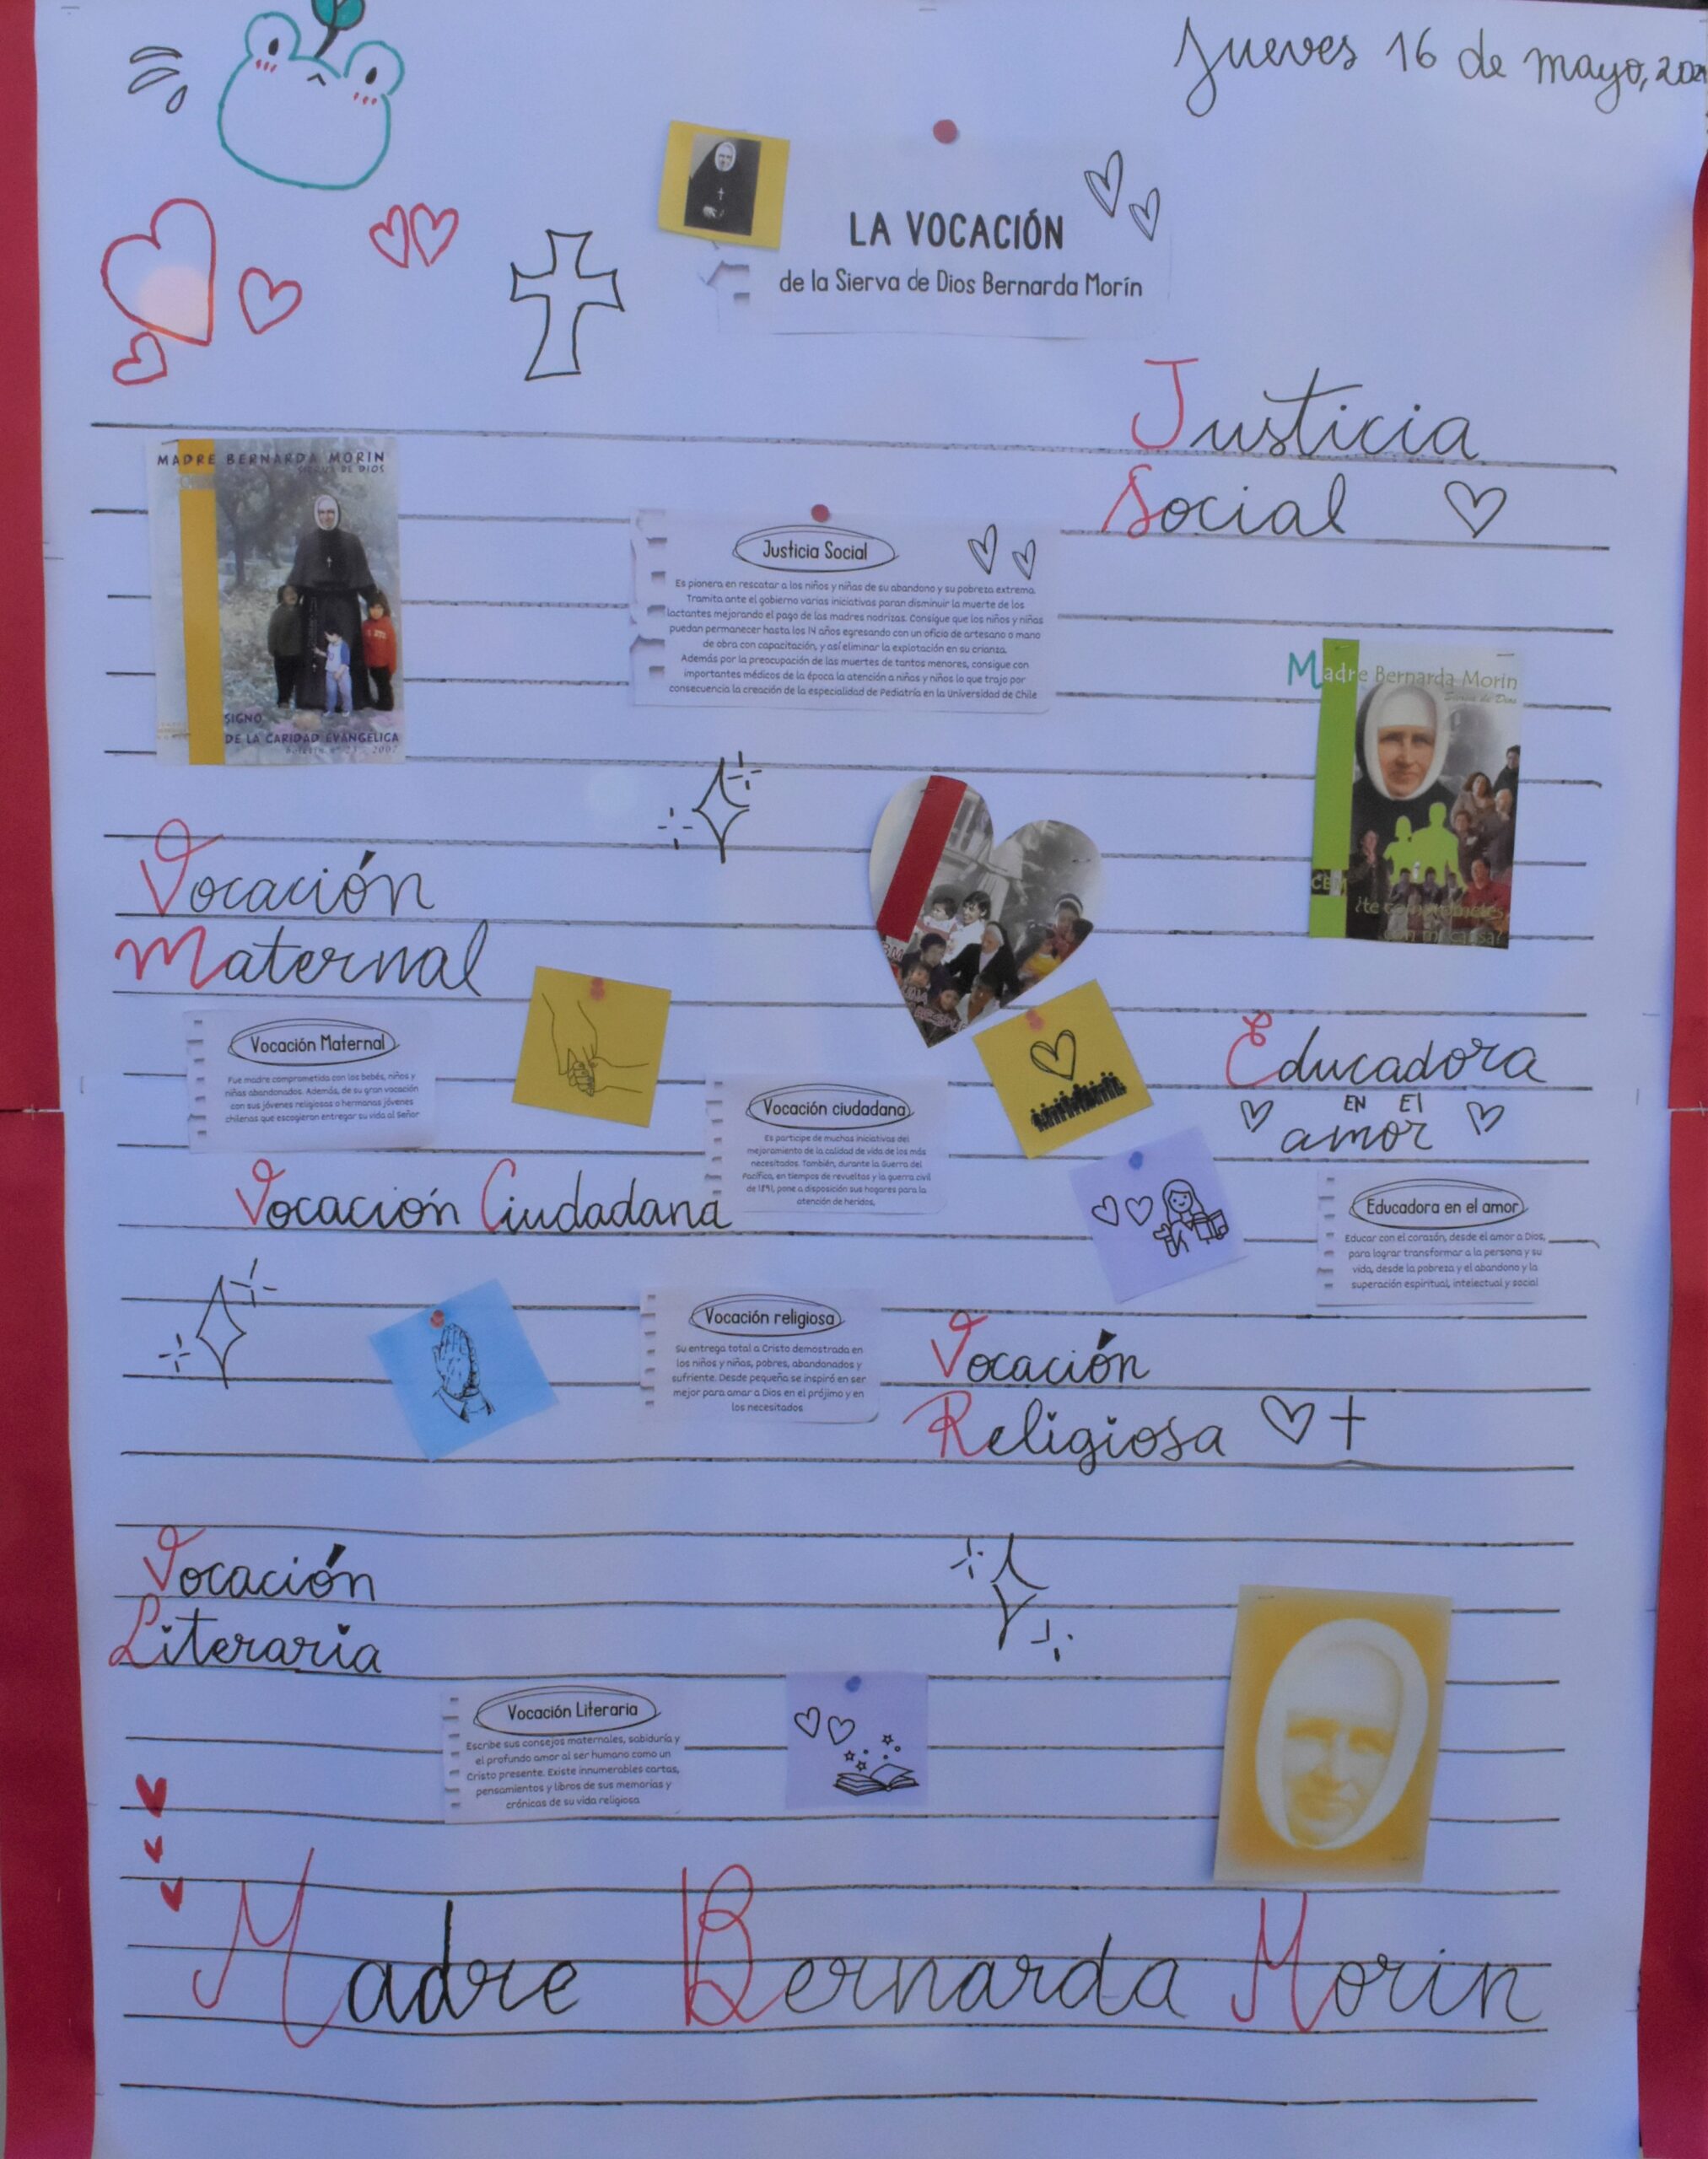 Jueves 16 de mayo, 202
LA VOCACIÓN
de la Sierva de Dios Bernarda Morín
Justicia
Social
MADRE BERNARDA MORIN
SIERVA DE DIOS
SIGNO
DE LA CARIDAD EVANGELICA
2007
Justicia Social
Es pionera en rescatar a los niños y niñas de su abandono y su pobreza extrema.
Tramita ante el gobierno varias iniciativas paran disminuir la muerte de los
lactantes mejorando el pago de las madres nodrizas. Consigue que los niños y niñas
puedan permanecer hasta los 14 años egresando con un oficio de artesano o mano
de obra con capacitación, y así eliminar la explotación en su crianza.
Además por la preocupación de las muertes de tantos menores, consigue con
importantes médicos de la época la atención a niños y niños lo que trajo por
consecuencia la creación de la especialidad de Pediatría en la Universidad de Chile
Madre Bernarda Morin
Sierva de Dios
¿te comprometes
con mi causa?
Vocación
Maternal
Vocación Maternal
Fue madre comprometida con los bebés, niños y
niñas abandonados. Además, de su gran vocación
con sus jóvenes religiosas o hermanas jóvenes
chilenas que escogieron entregar su vida al Señor
Educadora
EN El
amor
Vocación ciudadana
Es partícipe de muchas iniciativas del
mejoramiento de la calidad de vida de los más
necesitados. También, durante la Guerra del
Pacífico, en tiempos de revueltas y la guerra civil
de 1891, pone a disposición sus hogares para la
atención de heridos,
Vocación Ciudadana
Educadora en el amor
Educar con el corazón, desde el amor a Dios,
para lograr transformar a la persona y su
vida, desde la pobreza y el abandono y la
superación espiritual, intelectual y social
Vocación religiosa
Su entrega total a Cristo demostrada en
los niños y niñas, pobres, abandonados y
sufriente. Desde pequeña se inspiró en ser
mejor para amar a Dios en el prójimo y en
los necesitados
Vocación
Religiosa
Vocación
Literaria
Vocación Literaria
Escribe sus consejos maternales, sabiduría y
el profundo amor al ser humano como un
Cristo presente. Existe innumerables cartas,
pensamientos y libros de sus memorias y
crónicas de su vida religiosa
Madre Bernarda Morin